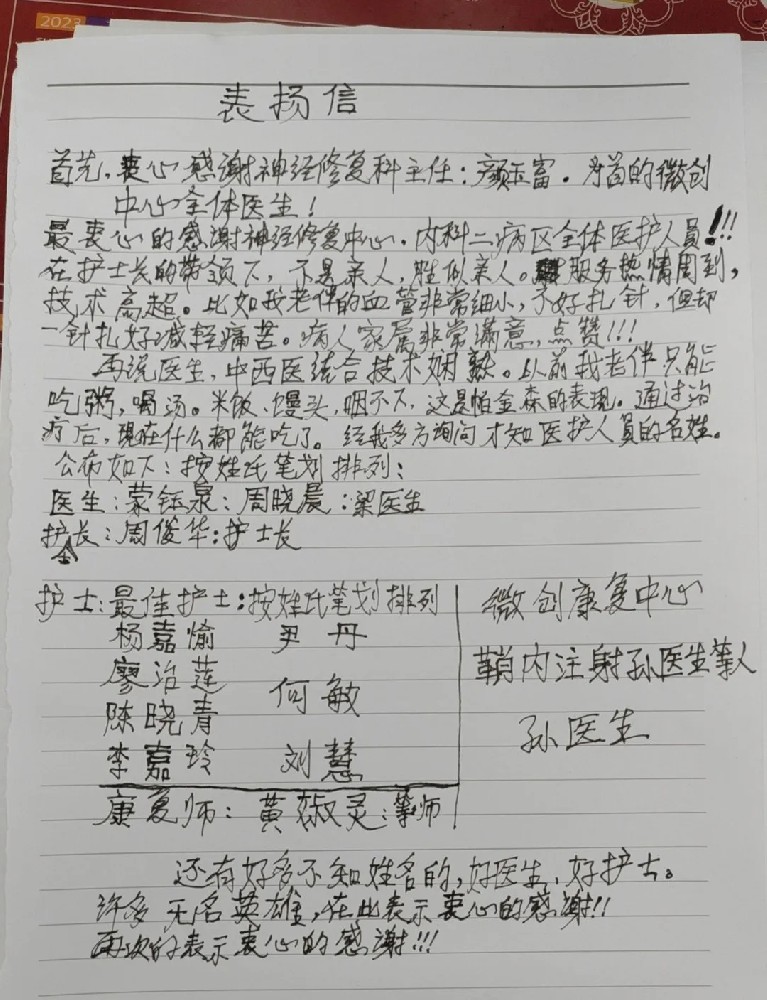 2023
表扬信
首先,衷心感谢神经修复科主任:颜玉富.的微创
中心全体医生!
最衷心的感谢神经修复中心.内科二病区全体医护人员!!!!
在护士长的带领下,不是亲人,胜似亲人。服务热情周到,
技术高超。比如我老伴的血管非常细小,不好扎针,但却
一针扎好减轻痛苦。病人家属非常满意,点赞!!!
再说医生,中西医结合技术娴熟。以前我老伴只能
吃粥,喝汤。米饭、馒头,咽不下,这是帕金森的表现。通过治
疗后,现在什么都能吃了。经我多方询问才知医护人员的名姓。
公布如下:按姓氏笔划排列:
医生:蒙钰泉:周晓晨:梁医生
护长:周俊华:护士长
护士:最佳护士:按姓氏笔划排列
杨嘉愉 尹丹
廖治莲
何敏
陈晓青
李嘉玲 刘慧
康复师:黄淑灵:等师
微创康复中心
鞘内注射孙医生等人
孙医生
还有好多不知姓名的,好医生,好护士。
许多无名英雄,在此表示衷心的感谢!!
再次的表示衷心的感谢!!!